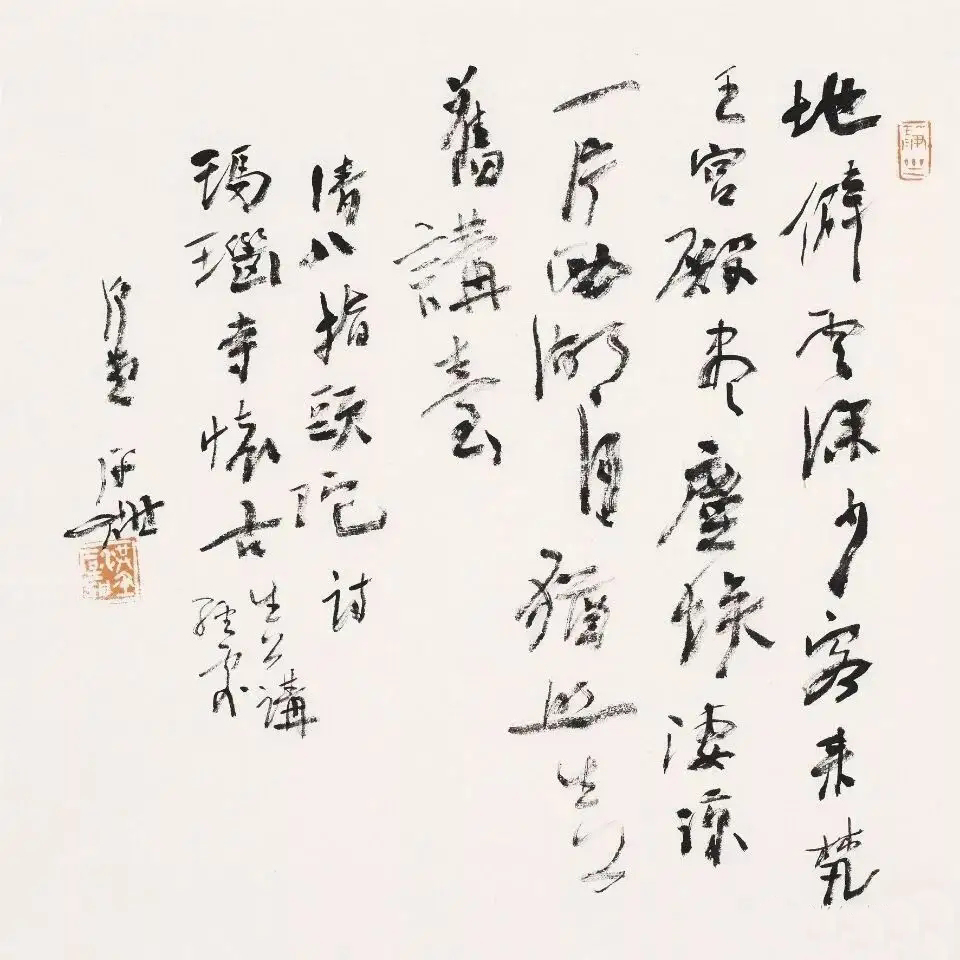 地僻雲深少客来梵
王宮殿尽塵埃淒涼
一片西湖月猶照生公
舊講臺
清八指頭陀詩
瑪瑙寺懷古
生公講
經處